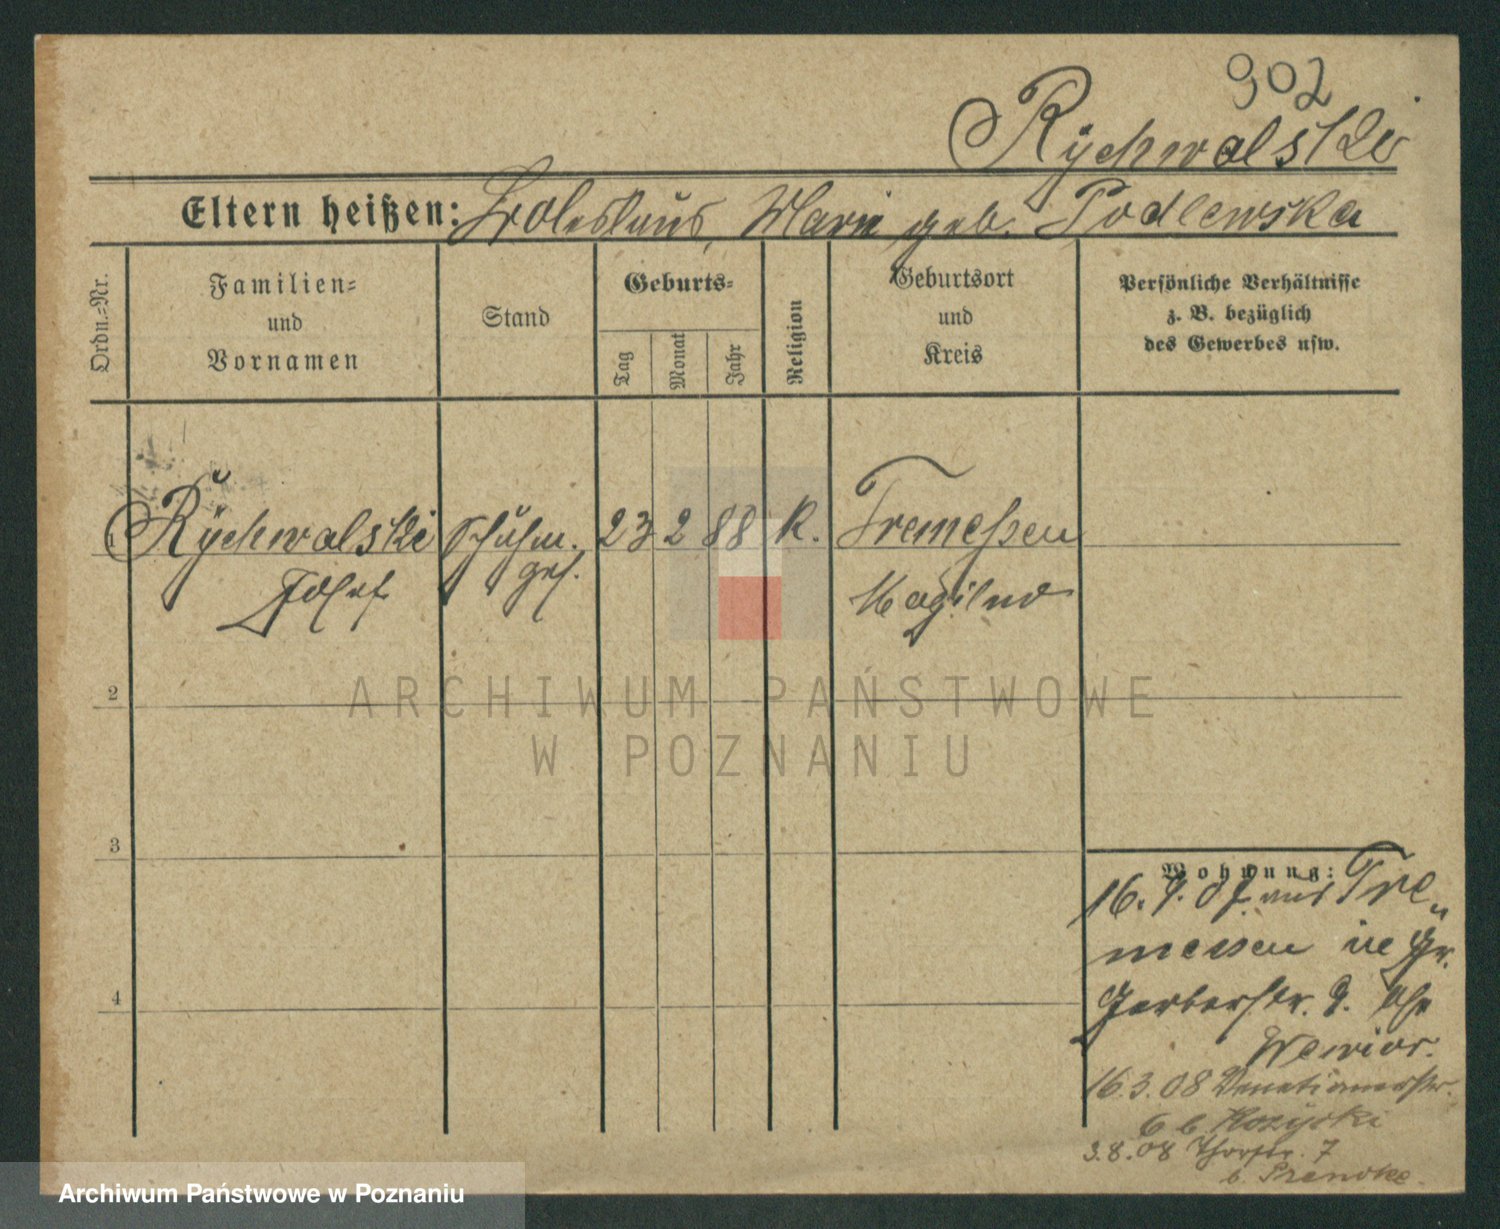 902
Rychwalski
Eltern heißen: Boleslaus, Marie geb. Podlewska
Ordn.-Nr.
Familien- und Vornamen
Stand
Geburts-
Tag
Monat
Jahr
Religion
Geburtsort und Kreis
Persönliche Verhältnisse
z. B. bezüglich
des Gewerbes usw.
1 Rychwalski Schuhm. 23 2 88 K. Tremessen
Josef ges. Mogilno
2
3
4
Wohnung:
16. 9. 07. aus Tre„
messen in Gr.
Gerberstr. 9. bei
16.3.08 Venetianerstr.
6 b.
3.8.08 Thorstr. 7
b.
ARCHIWUM PAŃSTWOWE
W POZNANIU
Archiwum Państwowe w Poznaniu